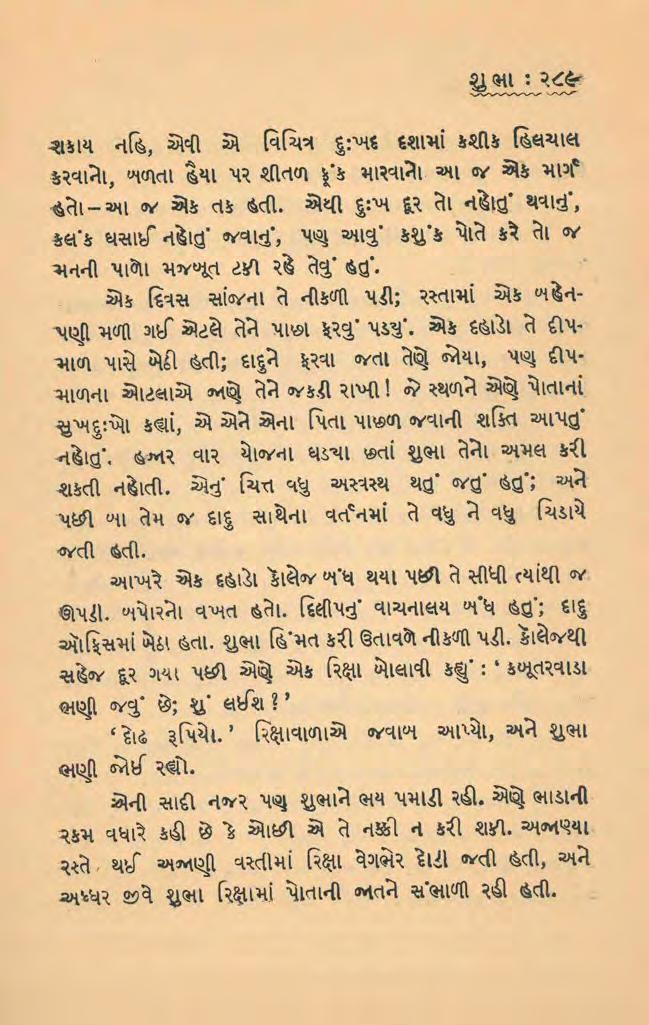 શુભા : ૨૮૯
શકાય નહિ, એવી એ વિચિત્ર દુઃખદ દશામાં કશીક હિલચાલ
કરવાનો, બળતા હૈયા પર શીતળ ફૂંક મારવાનો આ જ એક માર્ગ
હતો–આ જ એક તક હતી. એથી દુઃખ દૂર તો નહોતું થવાનું,
કલંક ઘસાઈ નહોતું જવાનું, પણ આવું કશુંક પોતે કરે તો જ
મનની પાળો મજબૂત ટકી રહે તેવું હતું.
એક દિવસ સાંજના તે નીકળી પડી; રસ્તામાં એક બહેન-
પણી મળી ગઈ એટલે તેને પાછા ફરવું પડયું. એક દહાડો તે દીપ-
માળ પાસે બેઠી હતી; દાદુને ફરવા જતા તેણે જોયા, પણ દીપ-
માળના ઓટલાએ જાણે તેને જકડી રાખી! જે સ્થળને એણે પોતાનાં
સુખદુઃખો કહ્યાં, એ એને એના પિતા પાછળ જવાની શક્તિ આપતું
નહોતું. હજાર વાર યોજના ઘડ્યા છતાં શુભા તેનો અમલ કરી
શકતી નહોતી. એનું ચિત્ત વધુ અસ્વસ્થ થતું જતું હતું; અને
પછી બા તેમ જ દાદુ સાથેના વર્તનમાં તે વધુ ને વધુ ચિડાયે
જતી હતી.
આખરે એક દહાડો કૉલેજ બંધ થયા પછી તે સીધી ત્યાંથી જ
ઊપડી. બપોરનો વખત હતો. દિલીપનું વાચનાલય બંધ હતું; દાદુ
ઑફિસમાં બેઠા હતા. શુભા હિંમત કરી ઉતાવળે નીકળી પડી. કૉલેજથી
સહેજ દૂર ગયા પછી એણે એક રિક્ષા બોલાવી કહ્યું : ‘ કબૂતરવાડા
ભણી જવું છે; શું લઈશ ?’
‘ દોઢ રૂપિયો. ’ રિક્ષાવાળાએ જવાબ આપ્યો, અને શુભા
ભણી જોઈ રહ્યો.
એની સાદી નજર પણ શુભાને ભય પમાડી રહી. એણે ભાડાની
રકમ વધારે કહી છે કે ઓછી એ તે નક્કી ન કરી શકી. અજાણ્યા
રસ્તે થઈ અજાણી વસ્તીમાં રિક્ષા વેગભેર દોડી જતી હતી, અને
અધ્ધર જીવે શુભા રિક્ષામાં પોતાની જાતને સંભાળી રહી હતી.